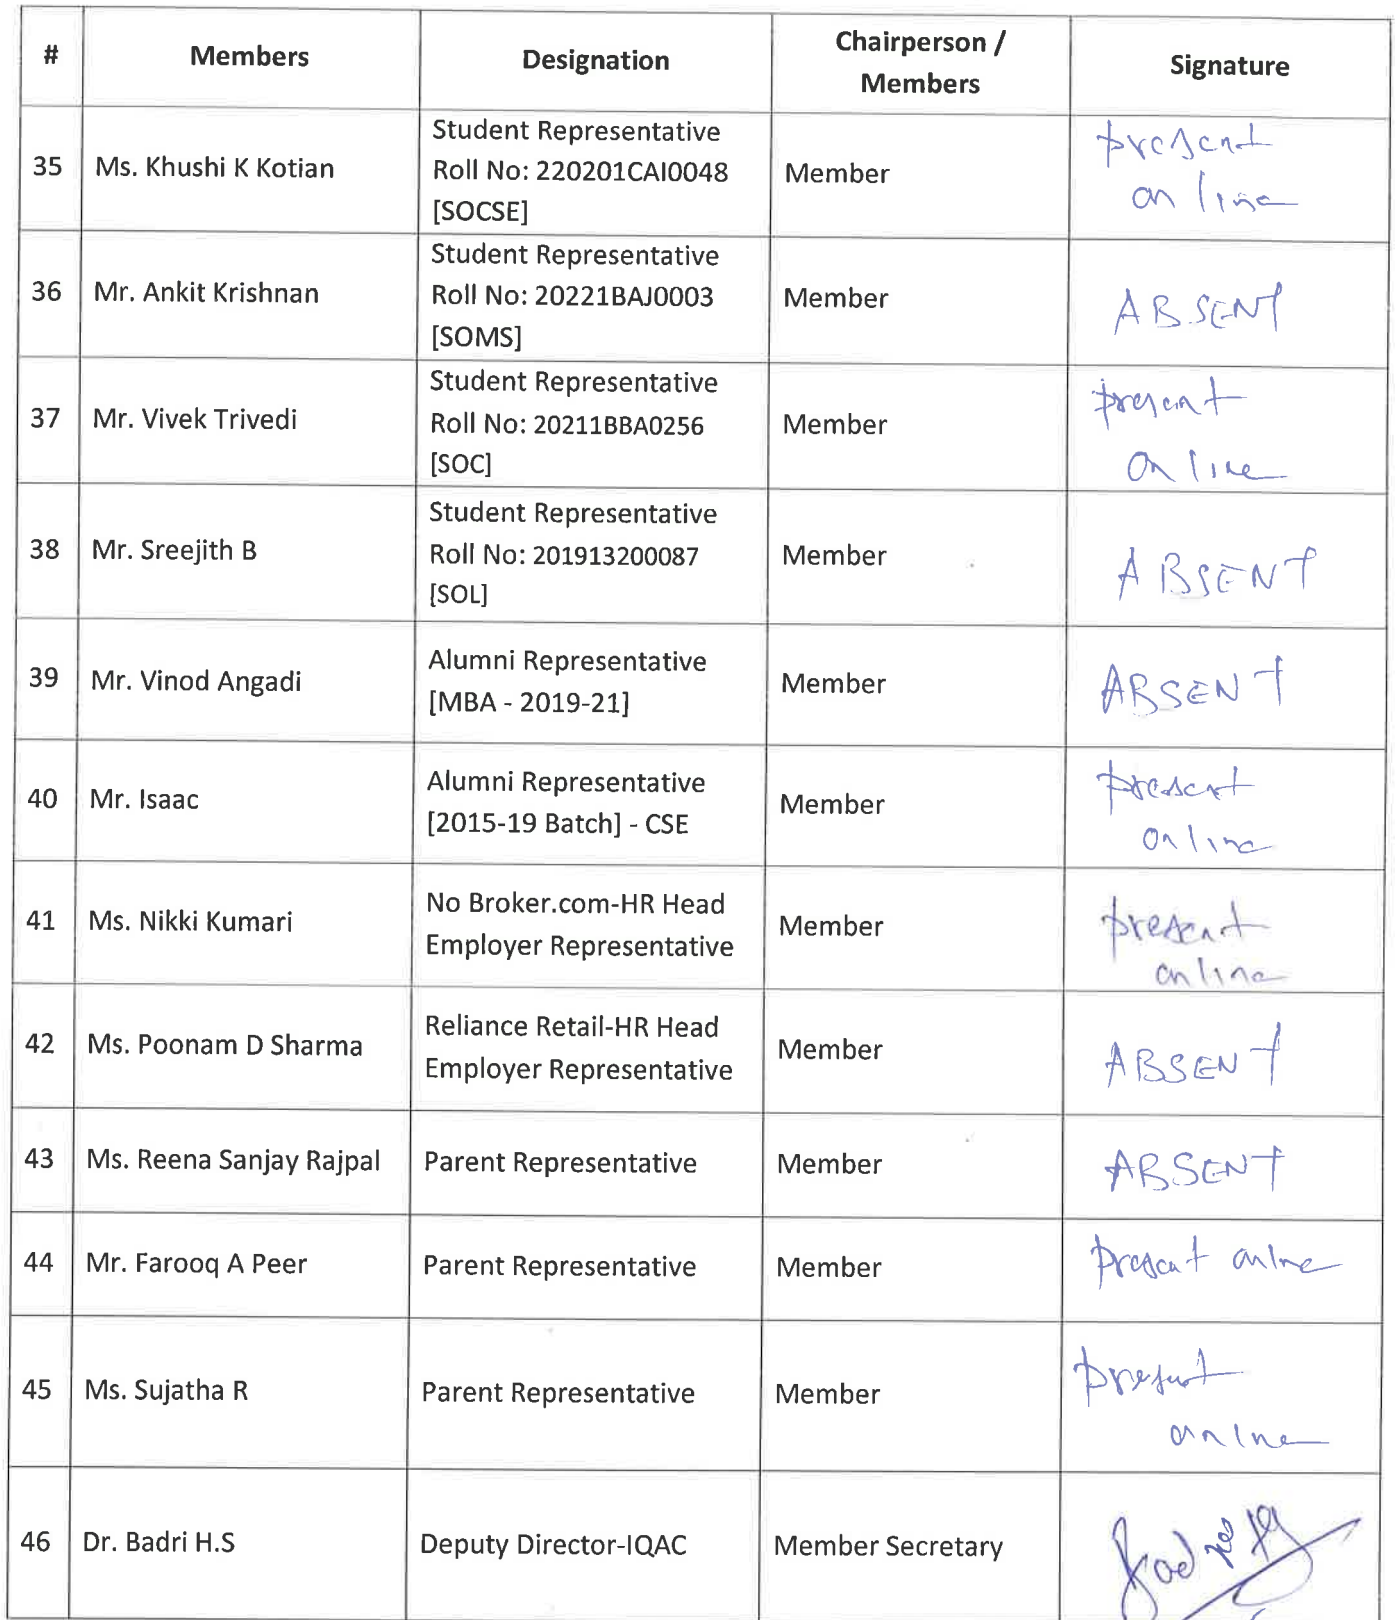 # Members Designation Chairperson / Members Signature
35 Ms. Khushi K Kotian Student Representative Roll No: 220201CAI0048 [SOCSE] Member present online
36 Mr. Ankit Krishnan Student Representative Roll No: 20221BAJ0003 [SOMS] Member ABSENT
37 Mr. Vivek Trivedi Student Representative Roll No: 20211BBA0256 [SOC] Member present online
38 Mr. Sreejith B Student Representative Roll No: 201913200087 [SOL] Member ABSENT
39 Mr. Vinod Angadi Alumni Representative [MBA - 2019-21] Member ABSENT
40 Mr. Isaac Alumni Representative [2015-19 Batch] - CSE Member present online
41 Ms. Nikki Kumari No Broker.com-HR Head Employer Representative Member present online
42 Ms. Poonam D Sharma Reliance Retail-HR Head Employer Representative Member ABSENT
43 Ms. Reena Sanjay Rajpal Parent Representative Member ABSENT
44 Mr. Farooq A Peer Parent Representative Member present online
45 Ms. Sujatha R Parent Representative Member present online
46 Dr. Badri H.S Deputy Director-IQAC Member Secretary